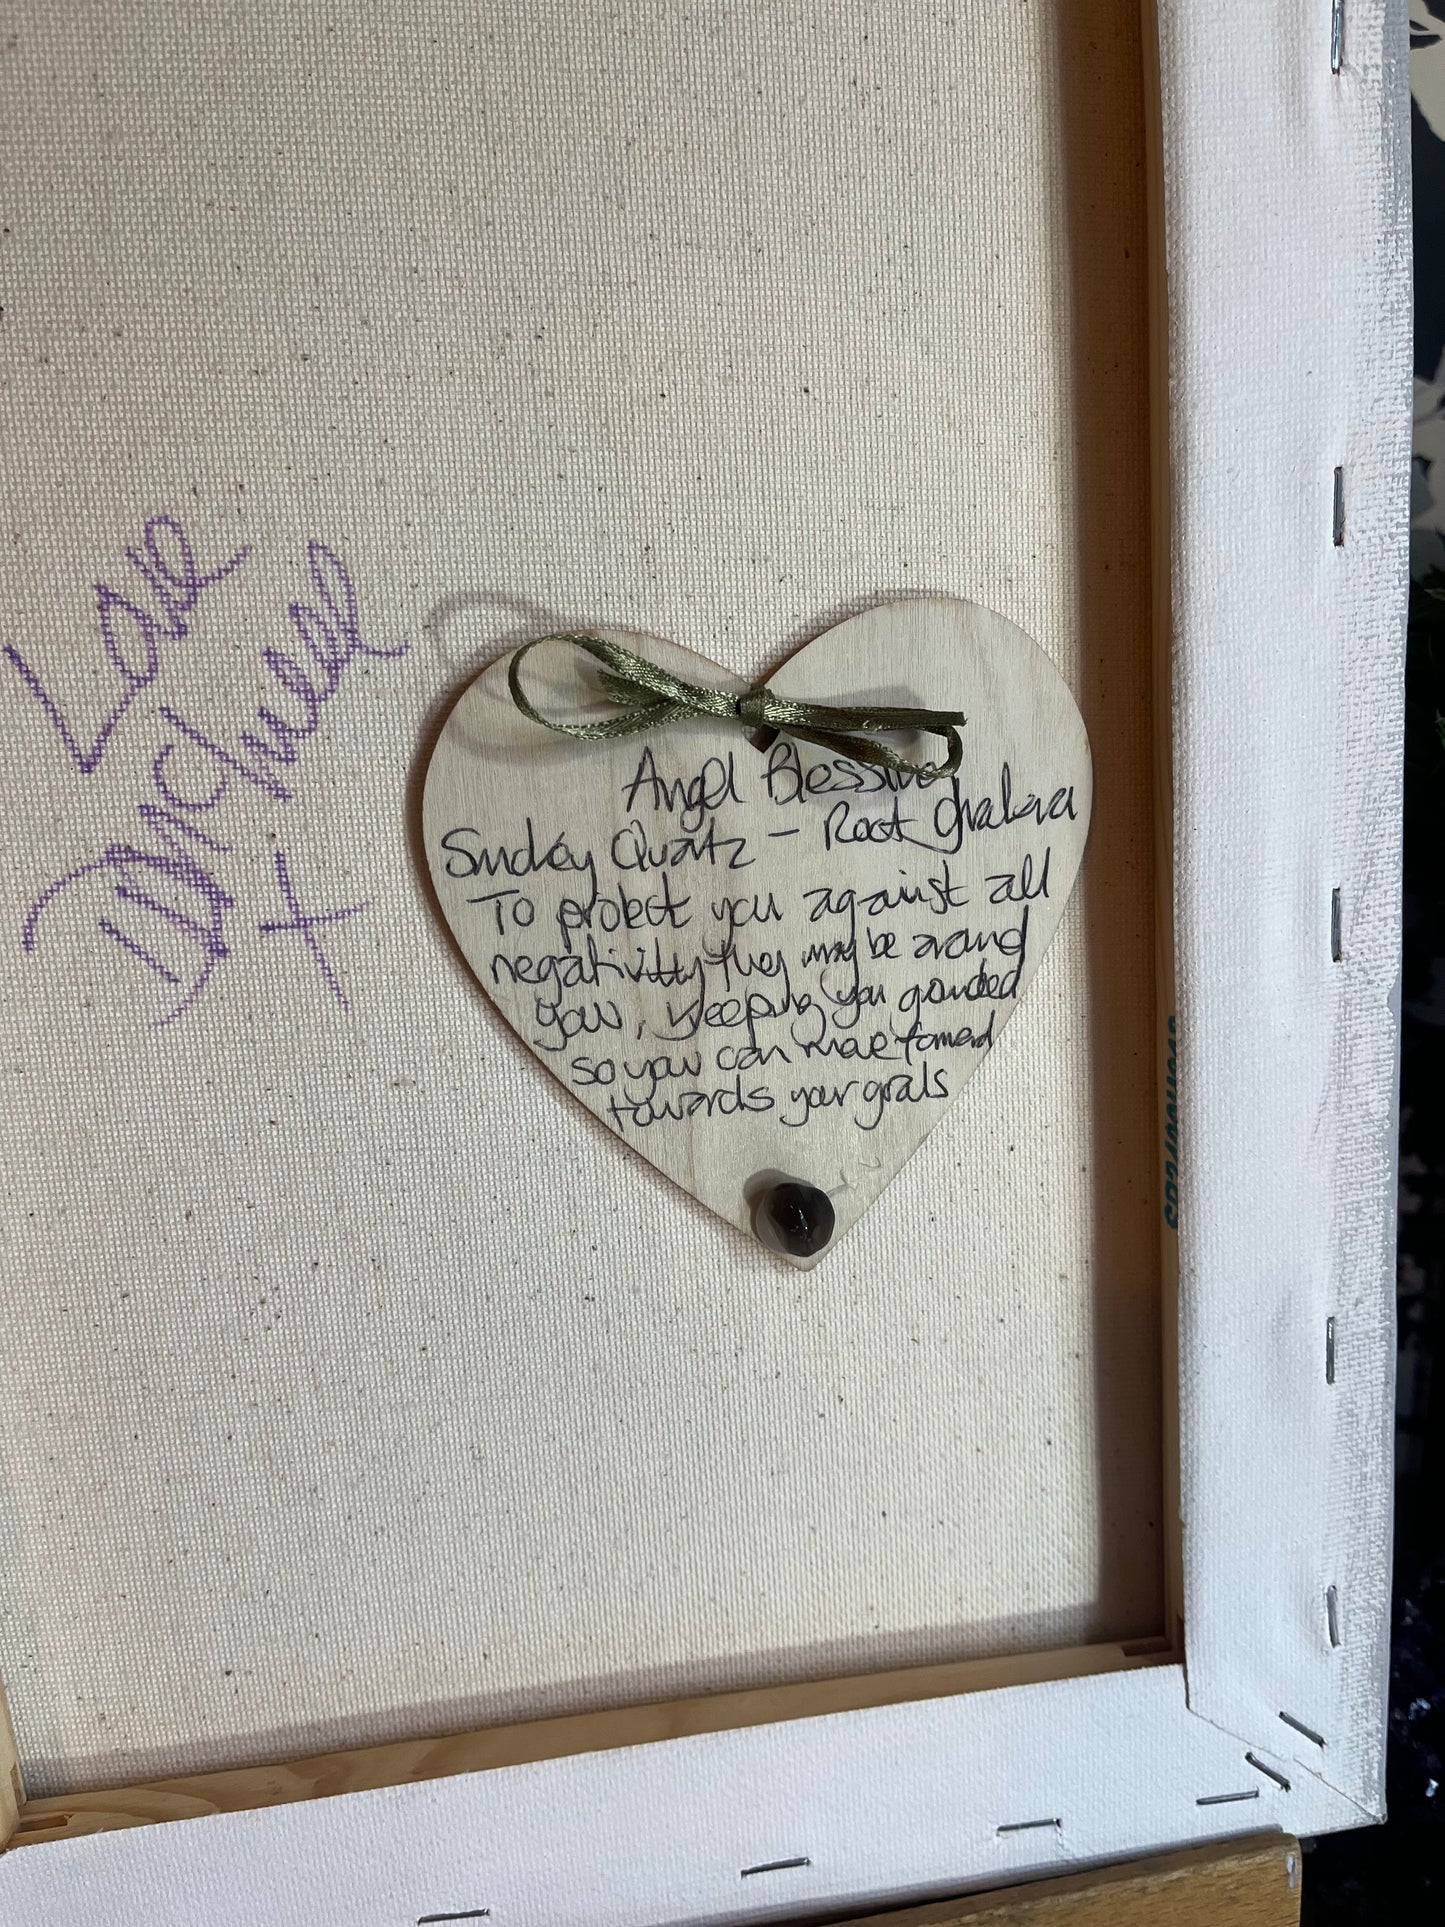 Love
Michelle
x
Angel Blessing
Smokey Quartz - Root Chakra
To protect you against all
negativity they may be around
you, keeping you grounded
so you can move forward
towards your goals